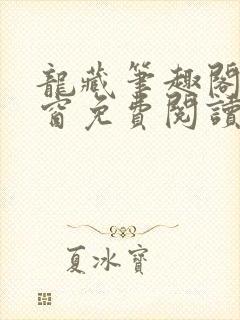 龍藏筆趣閣
窗免費閱讀
夏冰寶